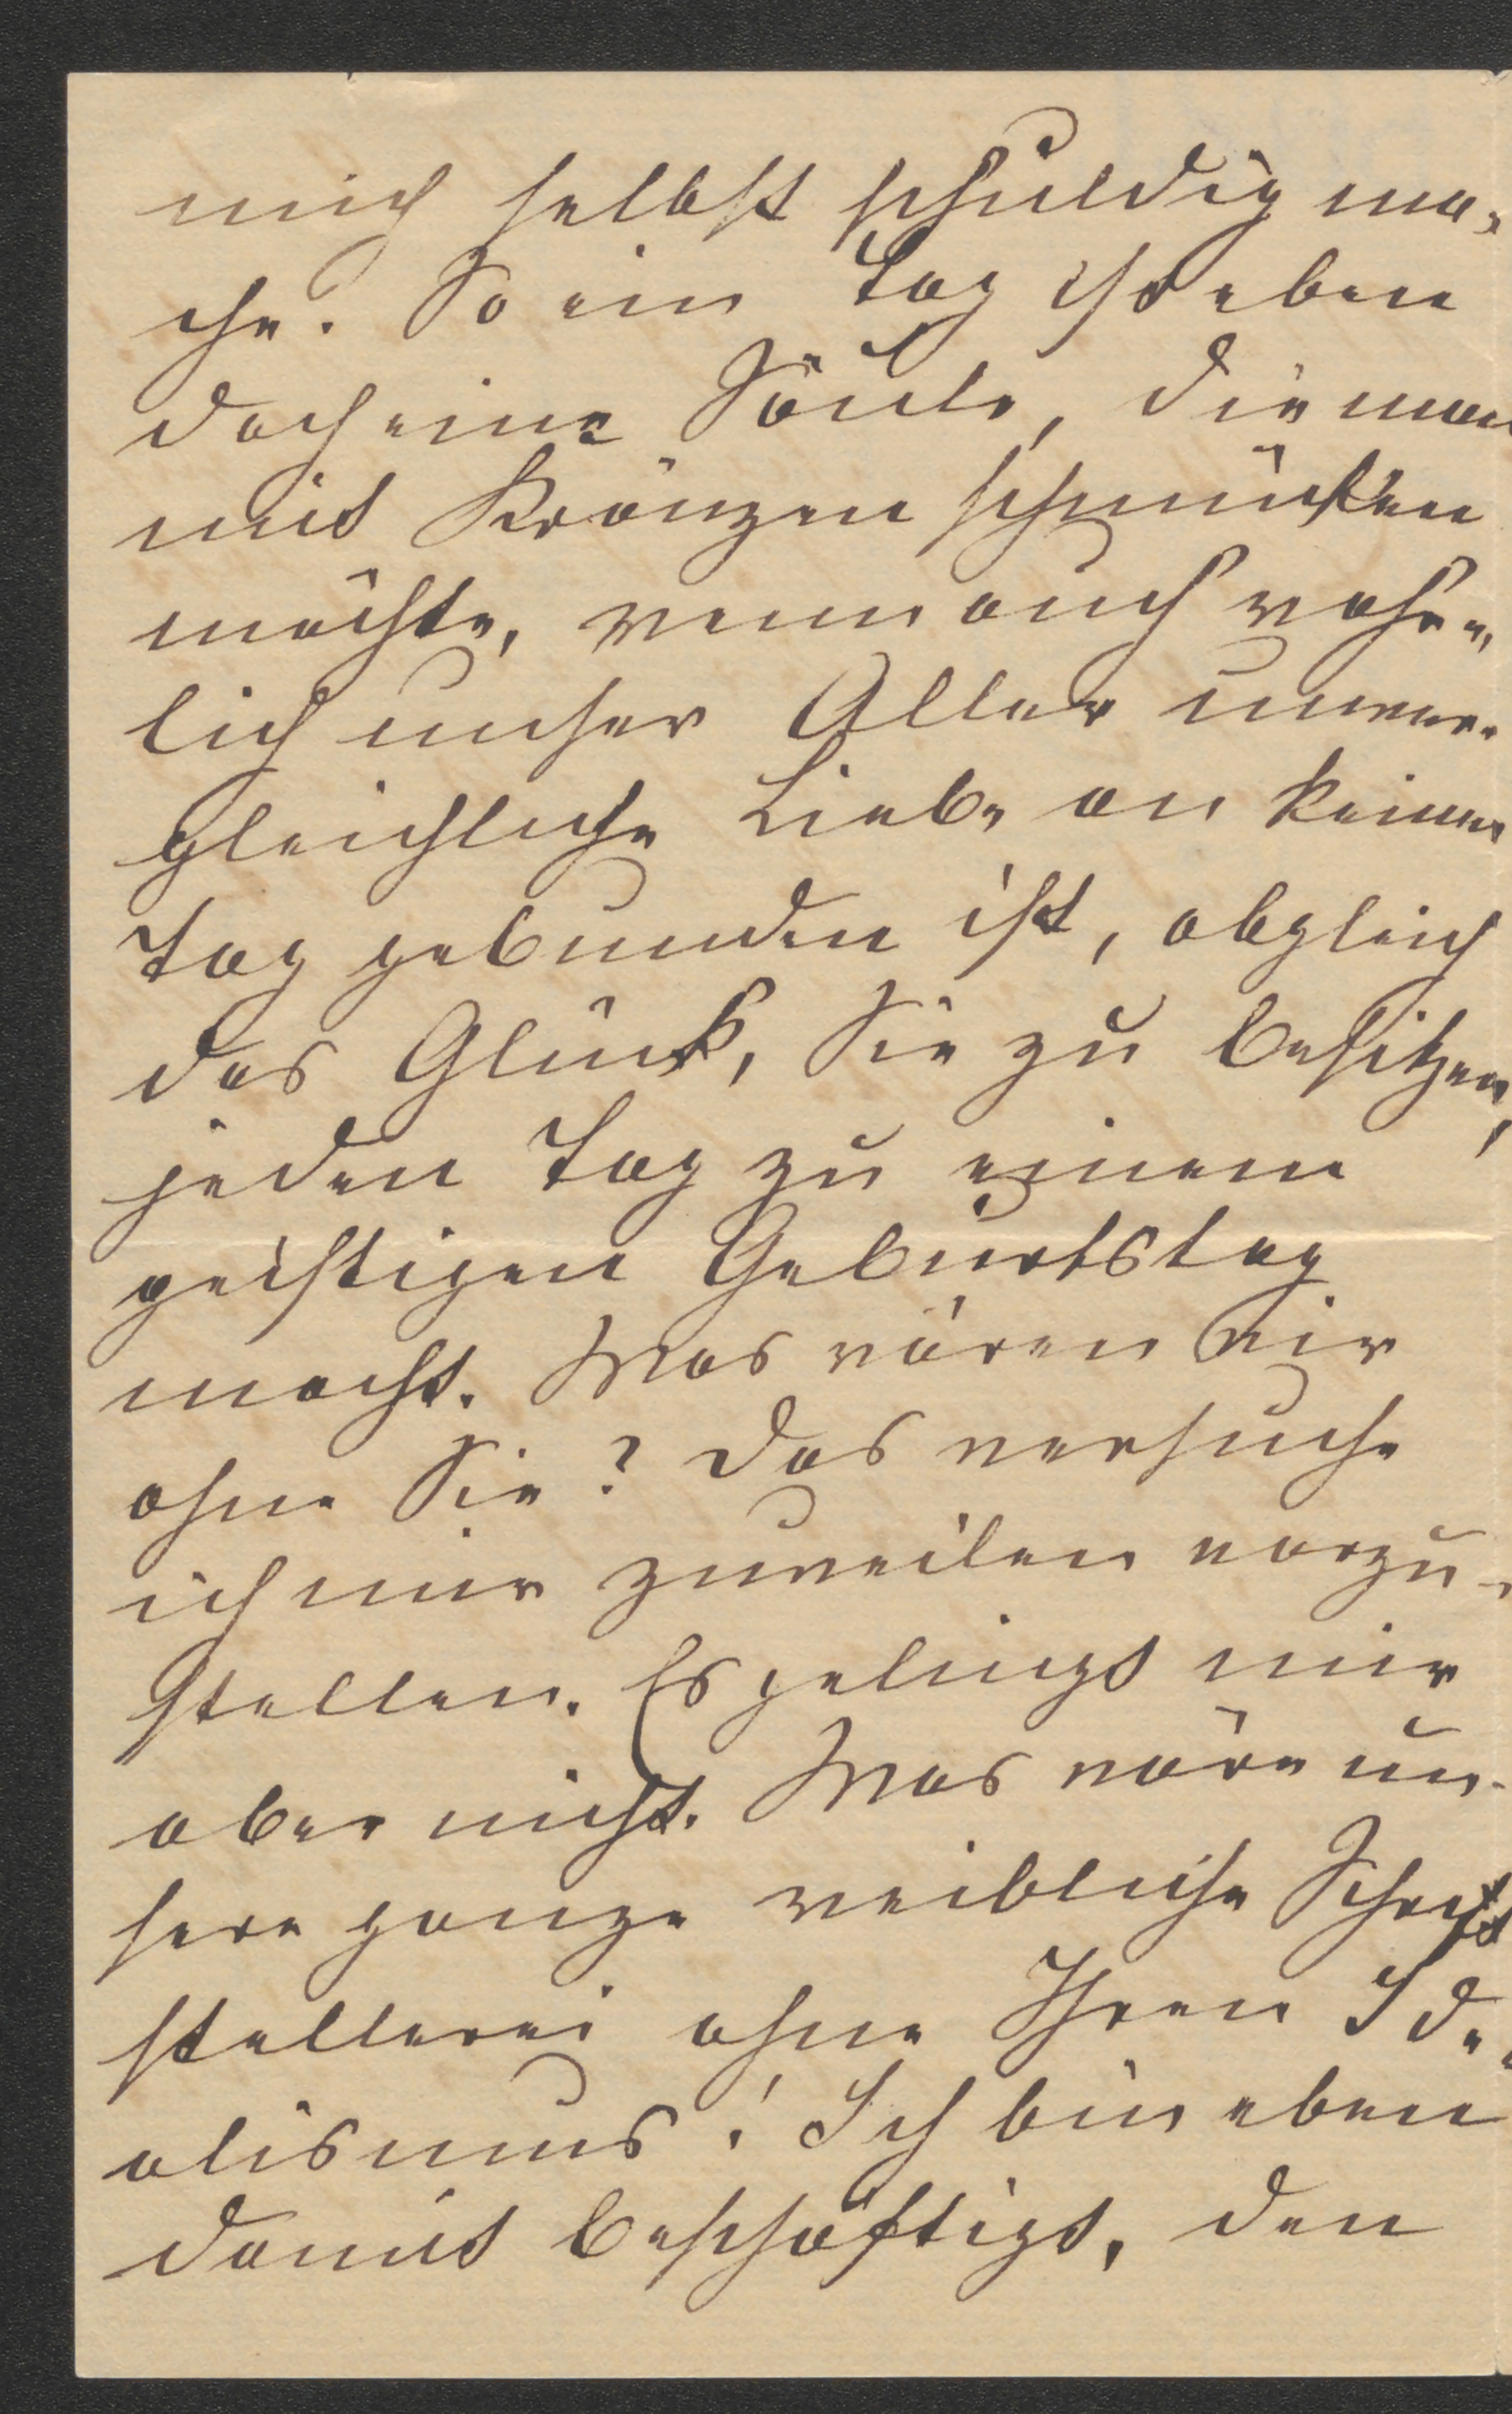 mich selbst schuldig ma-
che. So ein Tag ist eben
doch eine Säule, die man
mit Kränzen schmücken
möchte, wenn auch wahr-
lich unser Aller unver-
gleichliche Liebe an keinen
Tag gebunden ist, obgleich
das Glück, Sie zu besitzen,
jeden Tag zu einem
geistigen Geburtstag
macht. Was wären wir
ohne Sie? Das versuche
ich mir zuweilen vorzu-
stellen. Es gelingt mir
aber nicht. Was wäre un-
sere ganze weibliche Schrift
stellerei ohne Ihren Ide-
alismus! Ich bin eben
damit beschäftigt, den